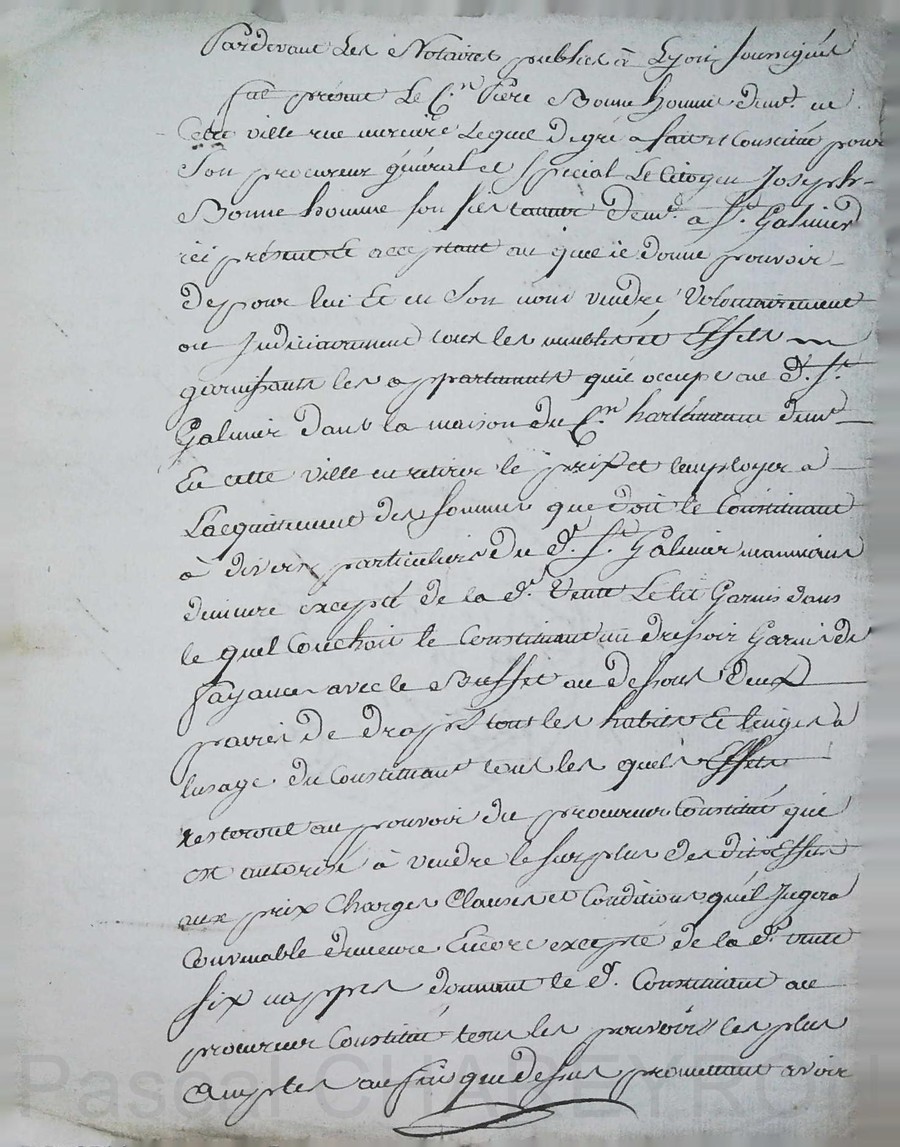 Pardevant Les Notaires publics à Lyon soussignés
fut présent Le C.en Piere Bonnehomme dem.t en
Cette ville rue mercire Lequel de gré a fait et Constitué pour
Son procureur général et spécial Le Citoyen Joseph
Bonnehomme son fils dem.t à S.t Galmier
ici présent Et acceptant au quel il donne pouvoir
de pour lui Et en Son nom vendre Volontairement
ou Judiciairement tous les meubles et Effets
garnissants les appartements quil occupe au d. S.t
Galmier dans la maison du C.en dem.t
En cette ville en retirer le prix et lemployer à
Lacquittement des sommes que doit le Constituant
à divers particuliers du d. S.t Galmier neanmoins
demeure excepté de la d. Vente Le lit Garni dans
le quel Couchoit le Constituant un dressoir Garni de
fayance avec le Buffet au dessous deux
paires de draps tous les habits Et linges à
lusage du Constituant tous les quels Effets
resteront au pouvoir du procureur Constitué qui
est autorisé à vendre le surplus des dits Effets
aux prix Charges Clauses et Conditions quil Jugera
Convenable demeure Encore excepté de la d. vente
six nappes donnant le d. Constituant au
procureur Constitué tous les pouvoirs les plus
amples aux fins que dessus promettant avoir
Pascal CHABEYRON